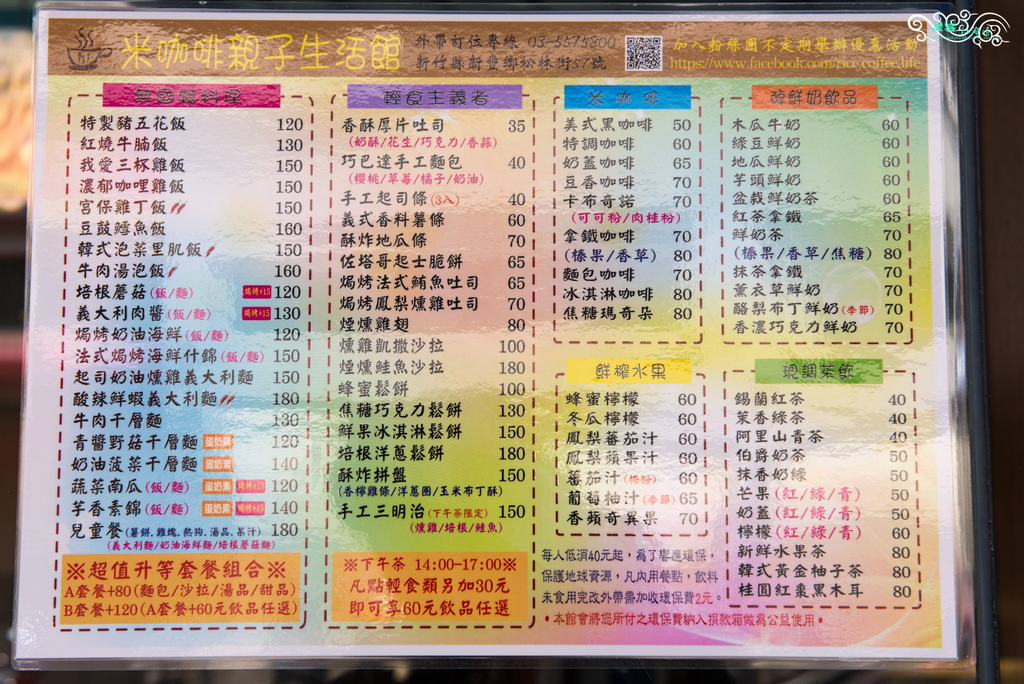 米咖啡親子生活館
外帶訂位專線 03-5575800
新竹縣新豐鄉松林街57號
加入粉絲團不定期舉辦優惠活動
https://www.facebook.com/rice.coffee.life
無國籍料理
特製豬五花飯 120
紅燒牛腩飯 130
我愛三杯雞飯 150
濃郁咖哩雞飯 150
宮保雞丁飯 150
豆鼓鱈魚飯 160
韓式泡菜里肌飯 150
牛肉湯泡飯 160
培根蘑菇(飯/麵) 焗烤+15 120
義大利肉醬(飯/麵) 焗烤+15 130
焗烤奶油海鮮(飯/麵) 120
法式焗烤海鮮什錦(飯/麵) 150
起司奶油燻雞義大利麵 150
酸辣鮮蝦義大利麵 180
牛肉千層麵 130
青醬野菇千層麵 蛋奶素 120
奶油菠菜千層麵 蛋奶素 140
蔬菜南瓜(飯/麵) 蛋奶素 焗烤+15 120
芋香素錦(飯/麵) 蛋奶素 焗烤+15 140
兒童餐(薯餅,雞塊,熱狗,湯品,果汁) 180
(義大利麵/奶油海鮮麵/培根蘑菇麵)
※超值升等套餐組合※
A套餐+80(麵包/沙拉/湯品/甜品)
B套餐+120(A套餐+60元飲品任選)
輕食主義者
香酥厚片吐司 35
(奶酥/花生/巧克力/香蒜)
巧巴達手工麵包 40
(櫻桃/草莓/橘子/奶油)
手工起司條(3入) 40
義式香料薯條 60
酥炸地瓜條 70
佐塔哥起士脆餅 65
焗烤法式鮪魚吐司 65
焗烤鳳梨燻雞吐司 70
煙燻雞翅 80
燻雞凱撒沙拉 100
煙燻鮭魚沙拉 180
蜂蜜鬆餅 100
焦糖巧克力鬆餅 130
鮮果冰淇淋鬆餅 150
培根洋蔥鬆餅 180
酥炸拼盤 150
(香檸雞條/洋蔥圈/玉米布丁酥)
手工三明治(下午茶限定) 150
(燻雞/培根/鮭魚)
※下午茶 14:00-17:00※
凡點輕食類另加30元
即可享60元飲品任選
米咖啡
美式黑咖啡 50
特調咖啡 60
奶蓋咖啡 65
豆香咖啡 70
卡布奇諾 70
(可可粉/肉桂粉)
拿鐵咖啡 70
(榛果/香草) 80
麵包咖啡 70
冰淇淋咖啡 80
焦糖瑪奇朵 80
鮮榨水果
蜂蜜檸檬 60
冬瓜檸檬 60
鳳梨蕃茄汁 60
鳳梨蘋果汁 60
蕃茄汁(梅粉) 60
葡萄柚汁(季節) 65
香蘋奇異果 70
醇鮮奶飲品
木瓜牛奶 60
綠豆鮮奶 60
地瓜鮮奶 60
芋頭鮮奶 60
盆栽鮮奶茶 60
紅茶拿鐵 65
鮮奶茶 70
(榛果/香草/焦糖) 80
抹茶拿鐵 70
薰衣草鮮奶 70
酪梨布丁鮮奶(季節) 70
香濃巧克力鮮奶 70
現調茶飲
錫蘭紅茶 40
茉香綠茶 40
阿里山青茶 40
伯爵奶茶 50
抹香奶綠 50
芒果(紅/綠/青) 50
奶蓋(紅/綠/青) 50
檸檬(紅/綠/青) 60
新鮮水果茶 80
韓式黃金柚子茶 80
桂圓紅棗黑木耳 80
每人低消40元起,為了響應環保,
保護地球資源,凡內用餐點,飲料
未食用完改外帶需加收環保費2元。
•本館會將您所付之環保費納入捐款箱做為公益使用•